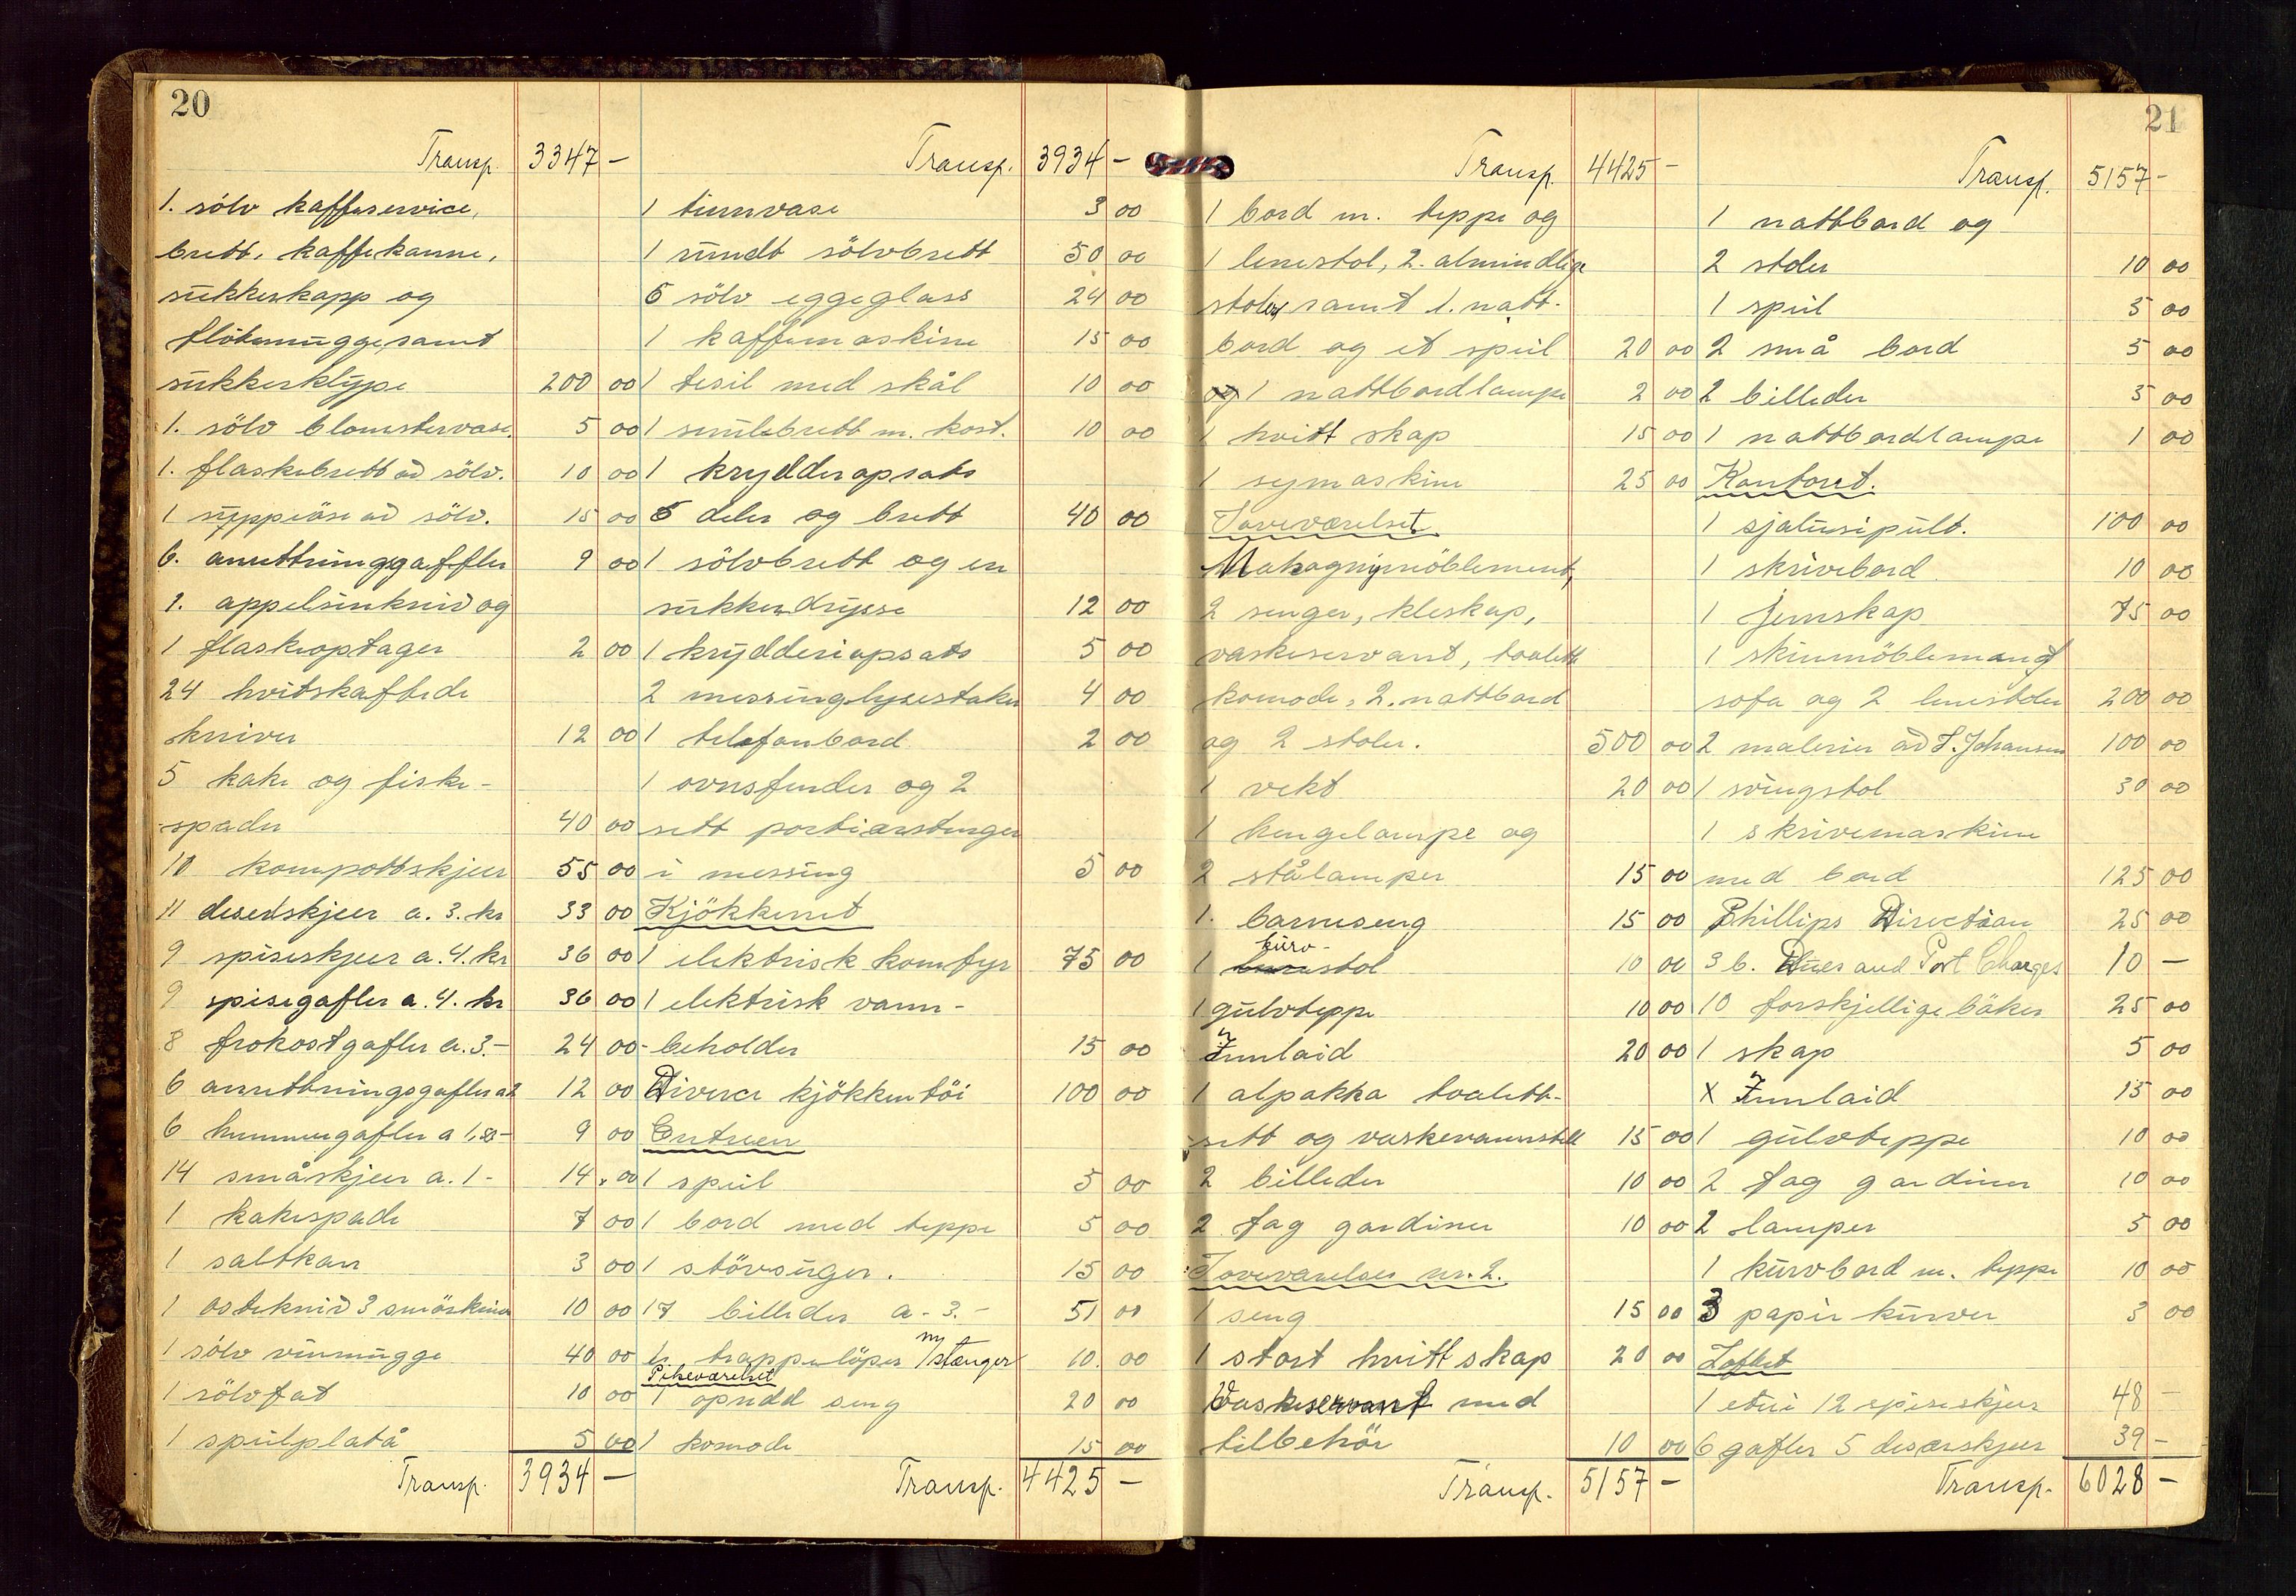 20
Transp. 3347 -
1. sölv kaffeservice,
brett, kaffekanne,
sukkerskapp og
flötemugge, samt
sukkerklype 200 00
1. sölv blomstervase. 5 00
1. flaskebrett av sölv. 10 00
1 suppeöse av sölv. 15 00
6. anrettningsgaffler 9 00
1. appelsinkniv og
1 flaskeoptager 2 00
24 hvitskaftede
kniver 12 00
5 kake og fiske-
spader 40 00
10 kompottskjeer 55 00
11 desertskjeer a. 3. kr 33 00
9 spiseskjeer a. 4. kr 36 00
9 spisegafler a. 4. kr 36 00
8 frokostgafler a. 3.- 24 00
6 anrettningsgafler a 2 12 00
6 hummergafler a 1,50- 9 00
14 småskjeer a. 1- 14,00
1 kakespade 7 00
1 saltkar 3 00
1 ostekniv 3 smörkniver 10 00
1 sölv vinmugge 40 00
1 sölvfat 10 00
1 speilplatå 5 00
Transp. 3934 -
Transp. 3934 -
1 tinnvase 3 00
1 rundt sölvbrett 50 00
6 sölv eggeglass 24 00
1 kaffemaskine 15 00
1 tesil med skål 10 00
1 smulebrett m. kost. 10 00
1 krydderopsats
6 deler og brett 40 00
1 sölvbrett og en
sukkerdrysse 12 00
1 krydderiopsats 5 00
2 messinglysestaker 4 00
1 telefonbord 2 00
1 ovnsfender og 2
sett portierstenger
i messing 5 00
Kjökkenet
1 elektrisk komfyr 75 00
1 elektrisk vann-
beholder 15 00
Diverse kjökkentöi 100 00
Entreen
1 speil 5 00
1 bord med teppe 5 00
1 stövsuger. 15 00
17 billeder a- 3.- 51 00
1 trappelöper m/stænger 10. 00
Pikeværelset
1 opredd seng 20 00
1 komode 15 00
Transp. 4425 -
21
Transp. 4425 -
1 bord m. teppe og
1 lenestol, 2. almindlige
stoler samt 1. natt-
bord og et speil 20 00
og 1 nattbordlampe 2 00
1 hvitt skap 15 00
1 symaskine 25 00
Soveværelset
Mahognymöblement,
2 senger, kleskap,
vaskeservant, toalett
komode, 2. nattbord
og 2 stoler. 500 00
1 vekt 20 00
1 hengelampe og
2 stålamper 15 00
1. barneseng 15 00
kurv-
1 stol 10 00
1 gulvteppe 10 00
Innlaid 20 00
1 alpakka toalett-
sett og vaskevannstell 15 00
2 billeder 10 00
2 fag gardiner 10 00
Soveværelses nr. 2.
1 seng 15 00
1 stort hvitt skap 20 00
Vaskeservant med
tilbehör 10 00
Transp. 5157 -
Transp. 5157 -
1 nattbord og
2 stoler 10 00
1 speil 5 00
2 små bord 5 00
2 billeder 5 00
1 nattbordlampe 1 00
Kontoret.
1 sjalusipult. 100 00
1 skrivebord 10 00
1 jernskap 75 00
1 skinnmöblemang
sofa og 2 lenestoler 200 00
2 malerier av S. Johansen 100 00
1 svingstol 30 00
1 skrivemaskine
med bord 125 00
Phillips Direction 25 00
3 b. Dues and Port Charges 10 -
10 forskjellige böker 25 00
1 skap 5 00
x Innlaid 15 00
1 gulvteppe 10 00
2 fag gardiner 10 00
2 lamper 5 00
1 kurvbord m. teppe 10 00
3 papir kurver 3 00
Loftet
1 etui 12 spiseskjeer 48 -
6 gafler 5 desærskjeer 39 -
Transp. 6028 -